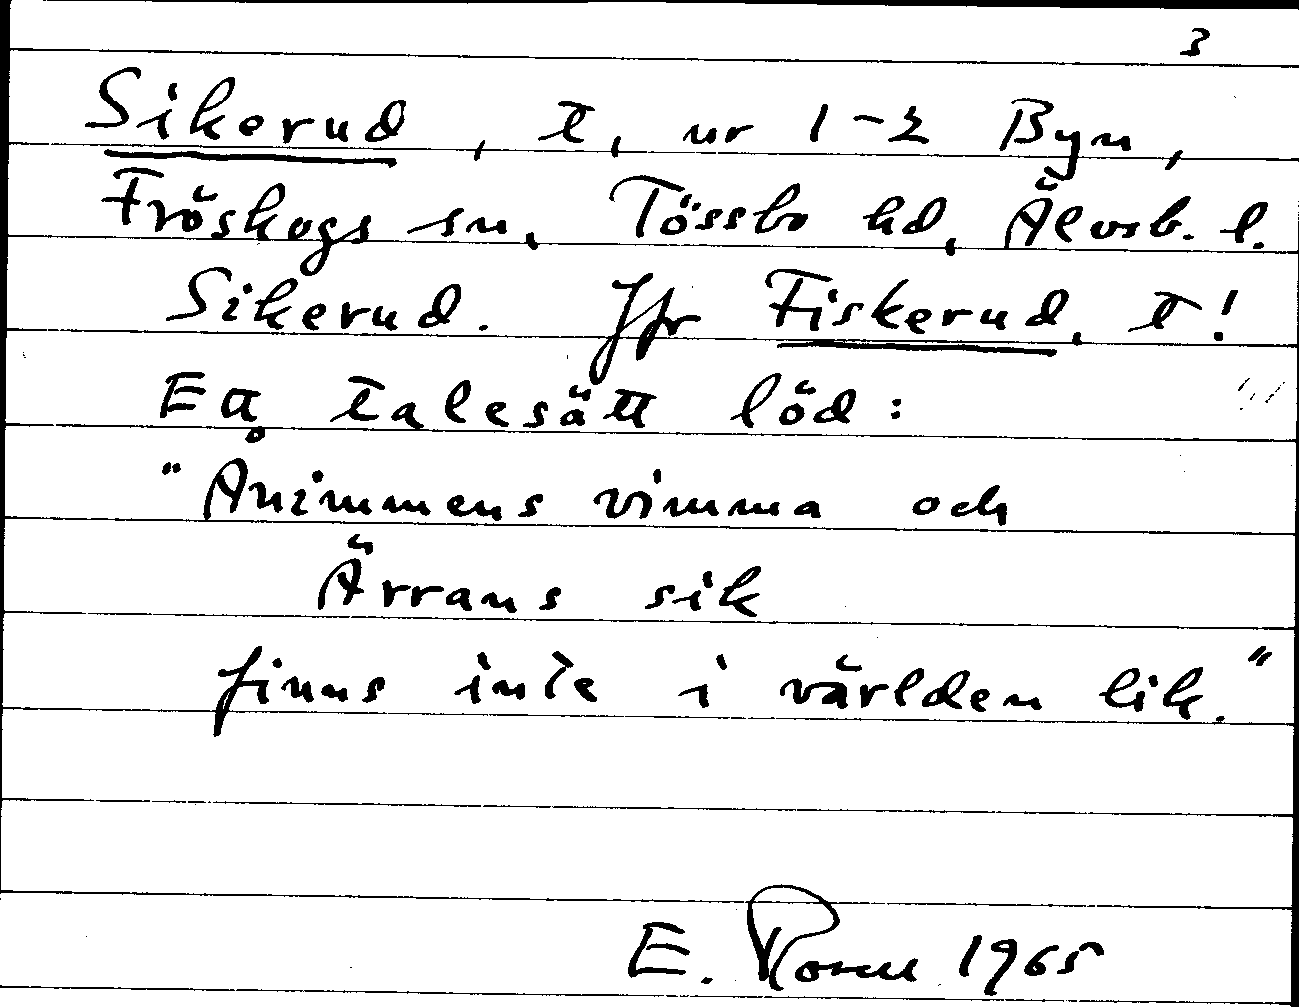 3
Sikerud, t, ur 1-2 Byn,
Fröskogs sn, Tössbo hd, Älvsb. l.
Sikerud. Jfr Fiskerud, t!
Ett talesätt löd:
"Ånimmens vimma och
Ärrans sik
finns inte i världen lik."
E. Rosell 1965